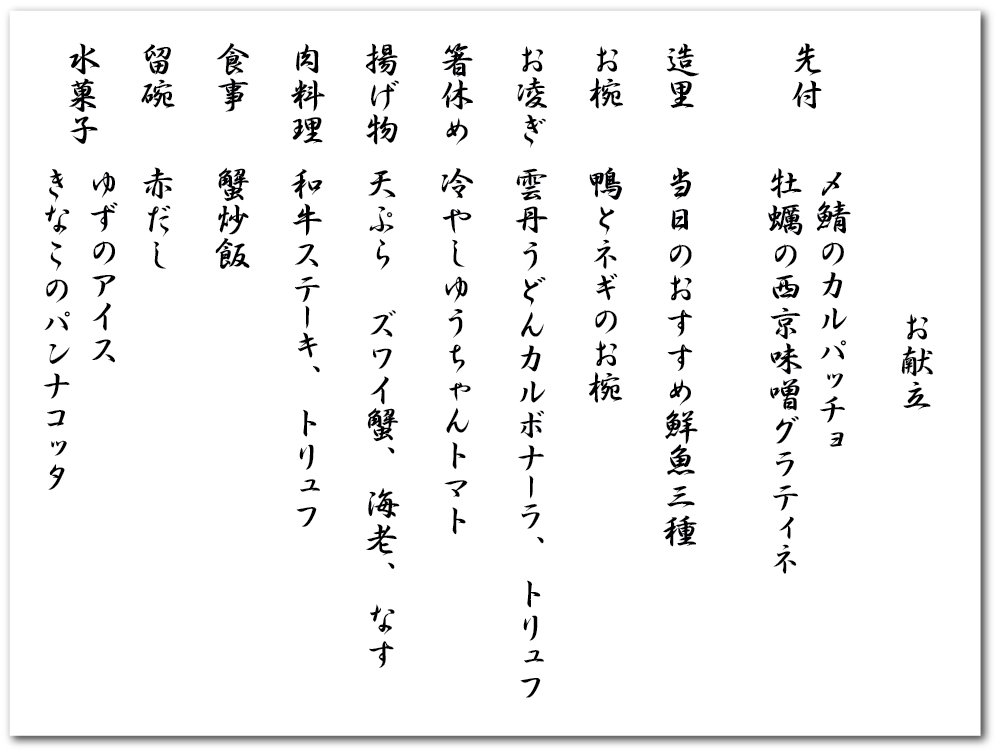 お献立
先付
〆鯖のカルパッチョ
牡蠣の西京味噌グラティネ
造里 当日のおすすめ鮮魚三種
お椀 鴨とネギのお椀
お凌ぎ 雲丹うどんカルボナーラ、トリュフ
箸休め 冷やしゆうちゃんトマト
揚げ物 天ぷら ズワイ蟹、海老、なす
肉料理 和牛ステーキ、トリュフ
食事 蟹炒飯
留碗 赤だし
水菓子
ゆずのアイス
きなこのパンナコッタ